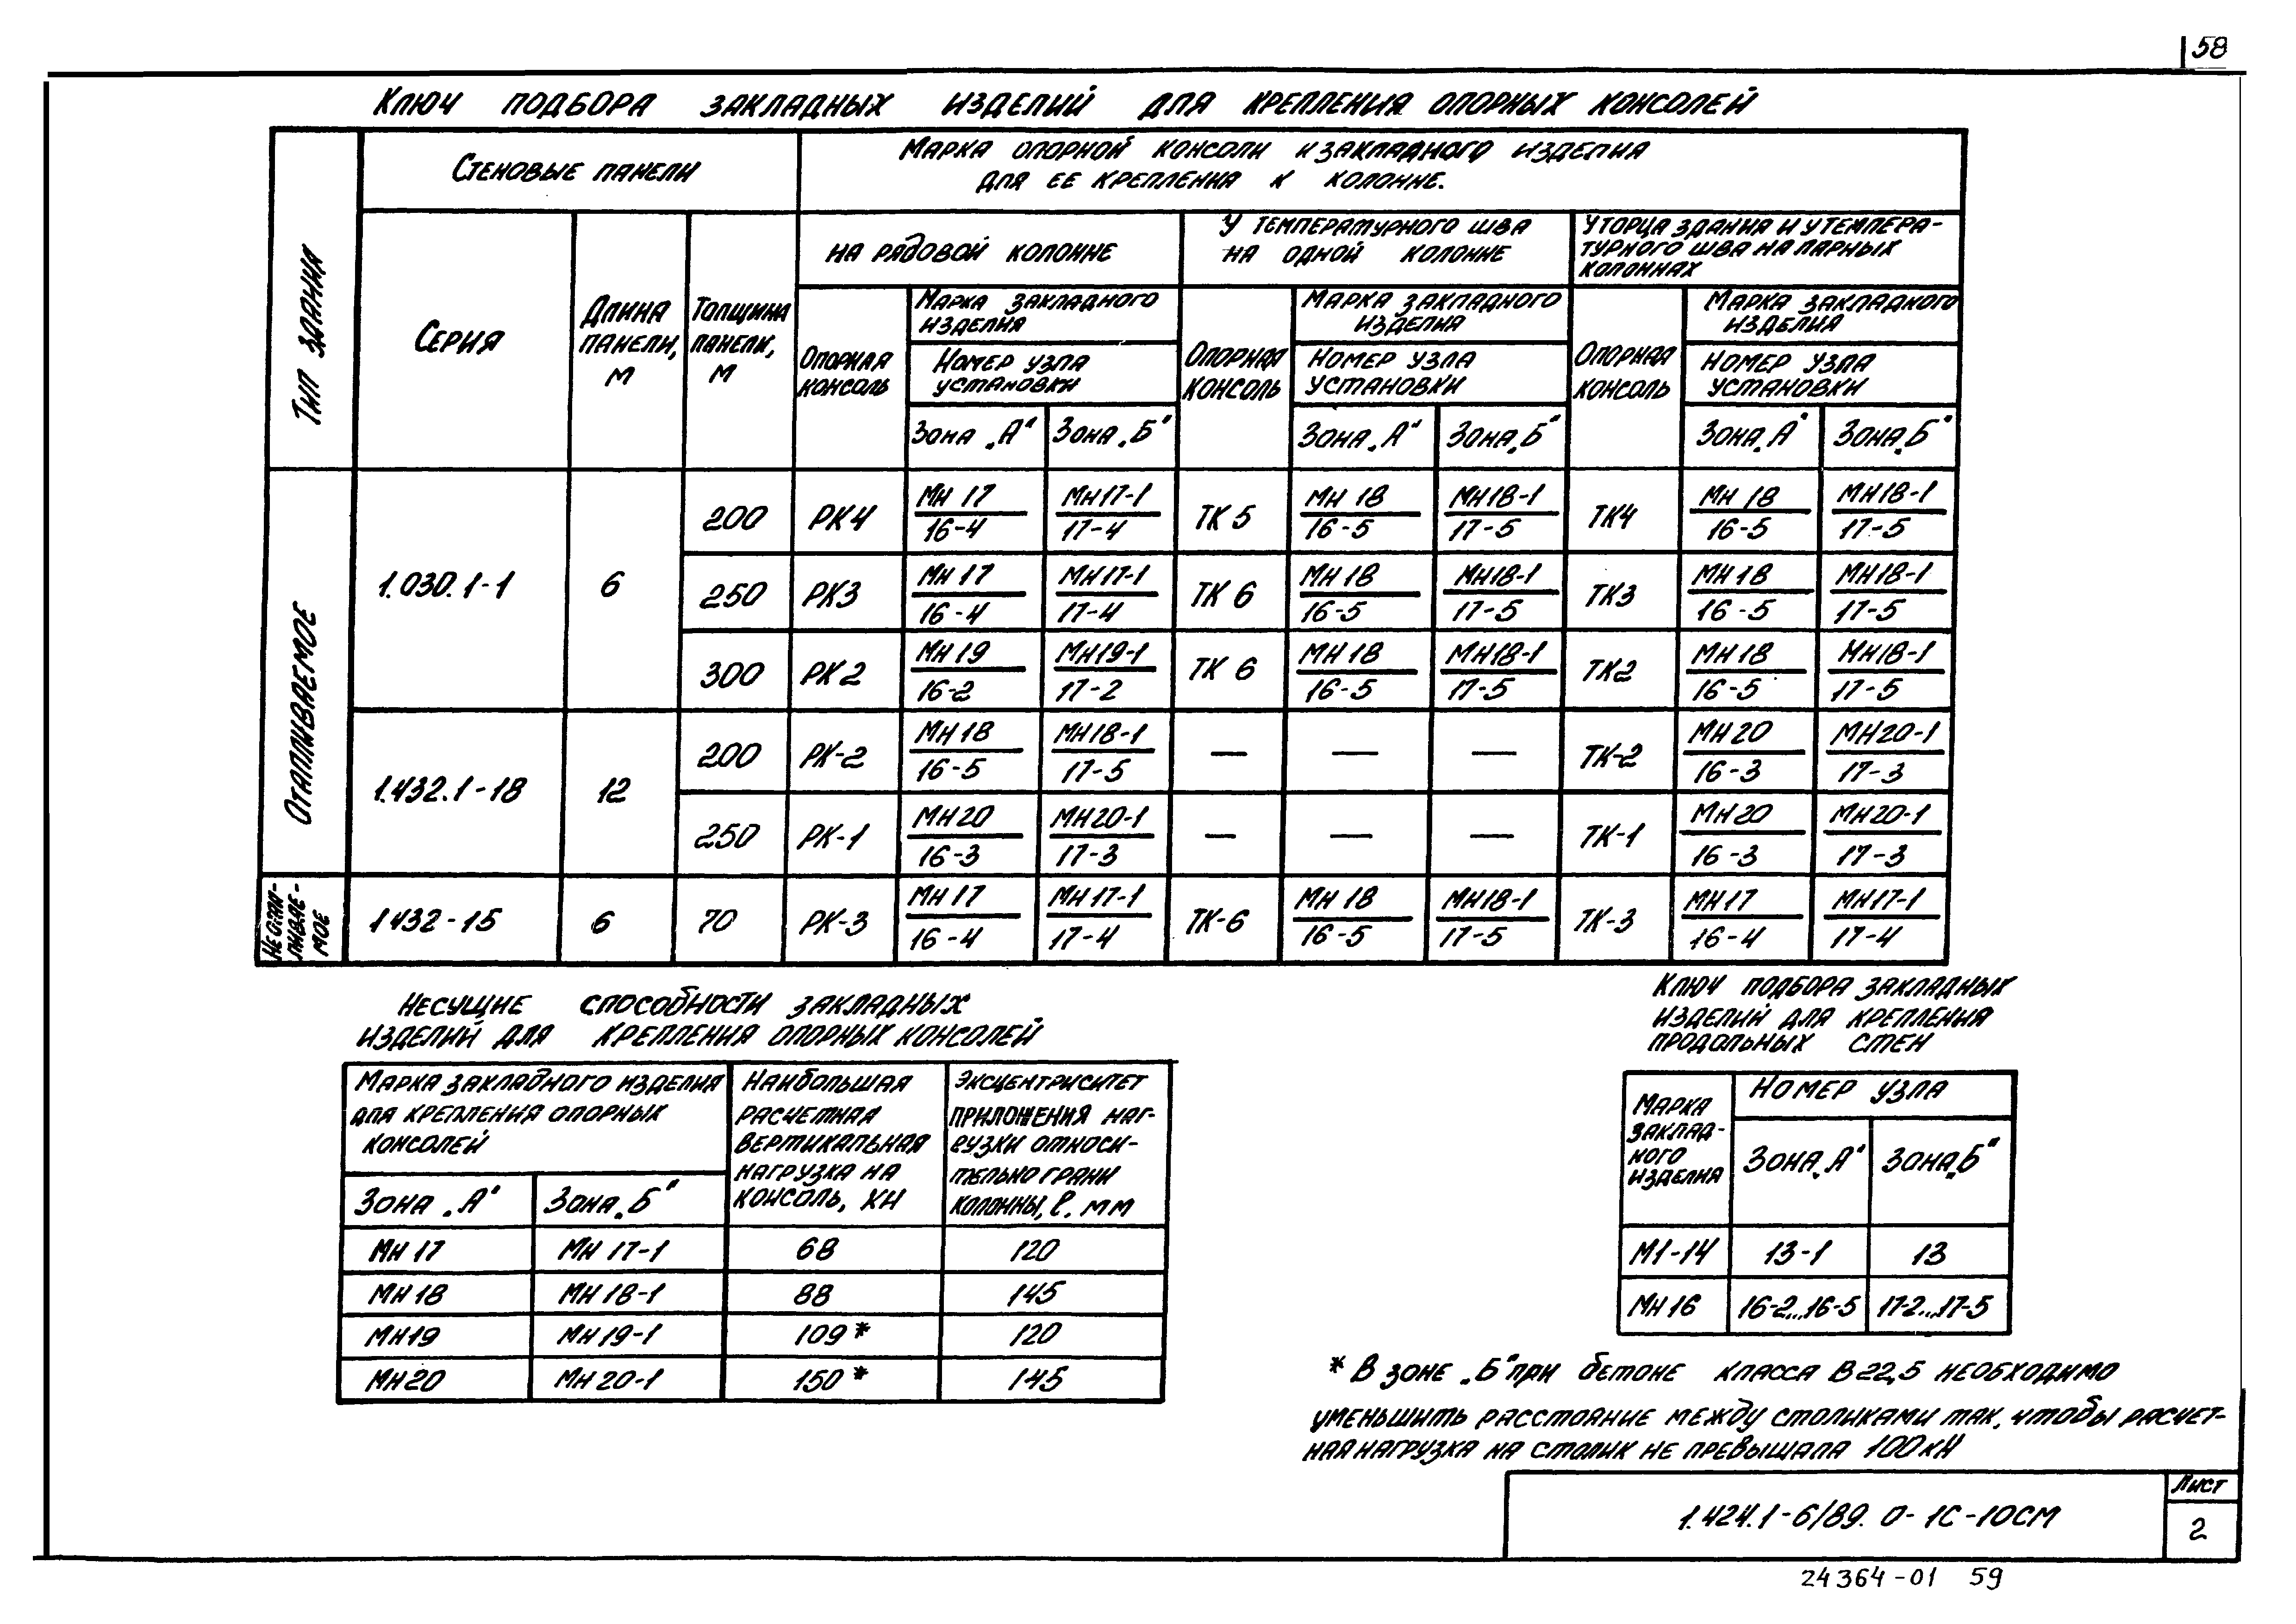 58
Ключ подбора закладных изделий для крепления опорных консолей
Тип здания
Стеновые панели
Марка опорной консоли и закладного изделия
для ее крепления к колонне.
Серия
Длина
панели,
м
Толщина
панели,
м
на рядовой колонне
У температурного шва
на одной колонне
У торца здания и у темпера-
турного шва на парных
колоннах
Опорная
консоль
Марка закладного
изделия
Номер узла
установки
Зона „А“ Зона „Б“
Опорная
консоль
Марка закладного
изделия
Номер узла
установки
Зона „А“ Зона „Б“
Опорная
консоль
Марка закладного
изделия
Номер узла
установки
Зона „А“ Зона „Б“
Отапливаемое
1.030.1-1 6
200 РК4 МН 17 МН17-1 ТК 5 МН 18 МН18-1 ТК4 МН 18 МН18-1
16-4 17-4 16-5 17-5 16-5 17-5
250 РК3 МН 17 МН17-1 ТК 6 МН 18 МН18-1 ТК3 МН 18 МН18-1
16-4 17-4 16-5 17-5 16-5 17-5
300 РК2 МН19 МН19-1 ТК 6 МН 18 МН18-1 ТК2 МН 18 МН18-1
16-2 17-2 16-5 17-5 16-5 17-5
1.432.1-18 12
200 РК-2 МН 18 МН18-1 — — — ТК-2 МН20 МН20-1
16-5 17-5 16-3 17-3
250 РК-1 МН20 МН20-1 — — — ТК-1 МН20 МН20-1
16-3 17-3 16-3 17-3
Не отап-
ливае-
мое
1432-15 6 70 РК-3 МН 17 МН17-1 ТК-6 МН 18 МН18-1 ТК-3 МН17 МН17-1
16-4 17-4 16-5 17-5 16-4 17-4
Несущие способности закладных
изделий для крепления опорных консолей
Марка закладного изделия
для крепления опорных
консолей
Зона „А“ Зона „Б“
Наибольшая
расчетная
вертикальная
нагрузка на
консоль, кН
Эксцентриситет
приложения наг-
рузки относи-
тельно грани
колонны, ℓ, мм
МН 17 МН 17-1 68 120
МН 18 МН 18-1 88 145
МН19 МН 19-1 109* 120
МН20 МН 20-1 150* 145
Ключ подбора закладных
изделий для крепления
продольных стен
Марка
заклад-
ного
изделия
Номер узла
Зона „А“ Зона „Б“
М1-14 13-1 13
МН 16 16-2...16-5 17-2...17-5
* В зоне „Б“ при бетоне класса В22,5 необходимо
уменьшить расстояние между столиками так, чтобы расчет-
ная нагрузка на столик не превышала 100кН
1.424.1-6/89. 0-1С-10СМ
Лист
2
24364-01 59